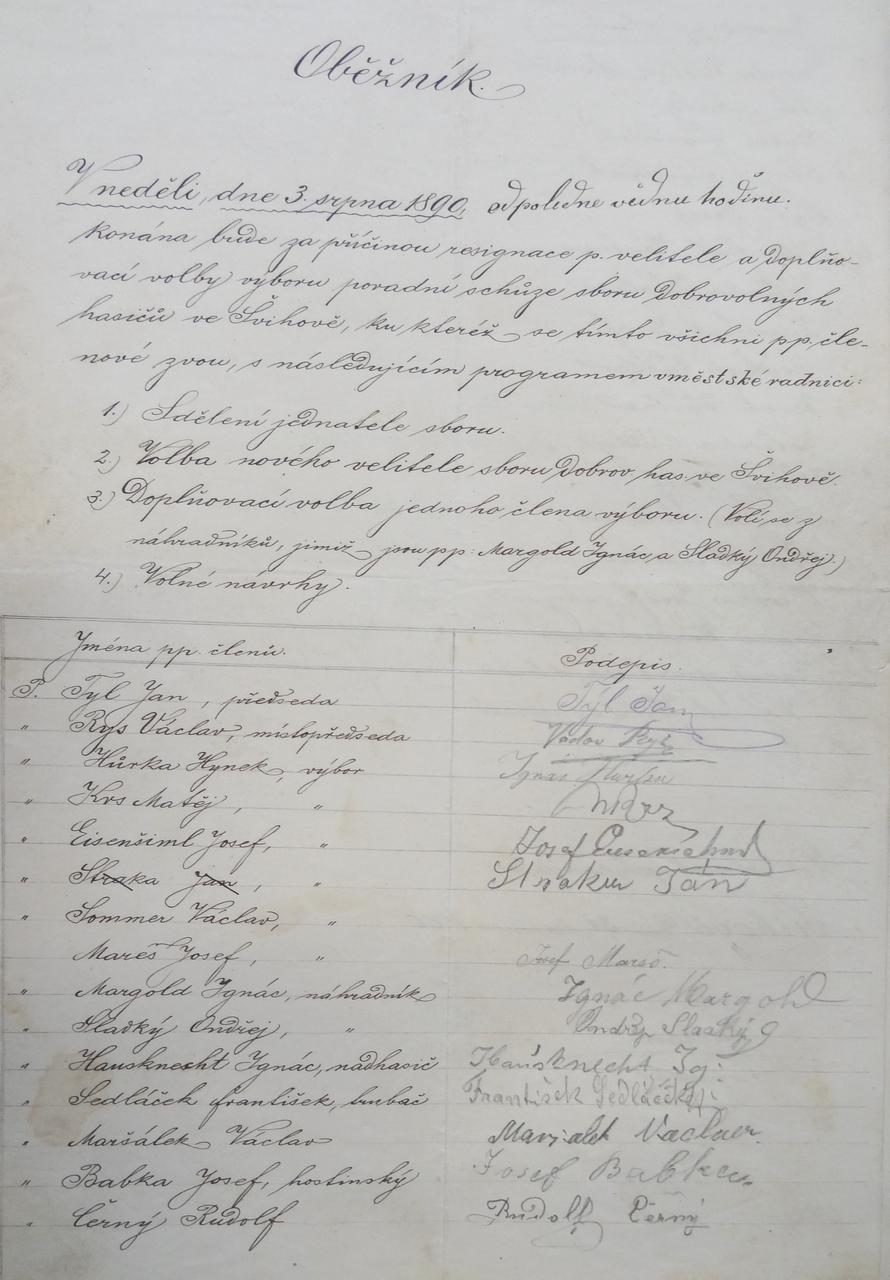 Oběžník.
V neděli, dne 3. srpna 1890, odpoledne v jednu hodinu.
konána bude za příčinou resignace p. velitele a doplňo-
vací volby výboru poradní schůze sboru dobrovolných
hasičů ve Švihově, ku kteréž se tímto všichni pp. čle-
nové zvou, s následujícím programem v městské radnici:
1.) Sdělení jednatele sboru.
2.) Volba nového velitele sboru dobrov. has. ve Švihově.
3.) Doplňovací volba jednoho člena výboru. (Volí se z
náhradníků, jimiž jsou pp: Margold Ignác, a Sladký Ondřej.)
4.) Volné návrhy.
Jména pp. členů. Podepis.
P. Tyl Jan, předseda Tyl Jan
" Rys Václav, místopředseda Václav
" Hůrka Hynek, výbor Ignác
" Krs Matěj, "
" Eisenšiml Josef, " Josef
" Straka Jan, " Straka Jan
" Sommer Václav, "
Mareš Josef, " Josef Mareš.
" Margold Ignác, náhradník Ignác Margold
" Sladký Ondřej, " Ondřej Sladký
" Hausknecht Ignác, nadhasič Hausknecht Ig:
" Sedláček František, trubač František Sedláček
" Maršálek Václav Marsalek Vaclav.
" Babka Josef, hostinský Josef Babka.
" Černý Rudolf Rudolf Černý